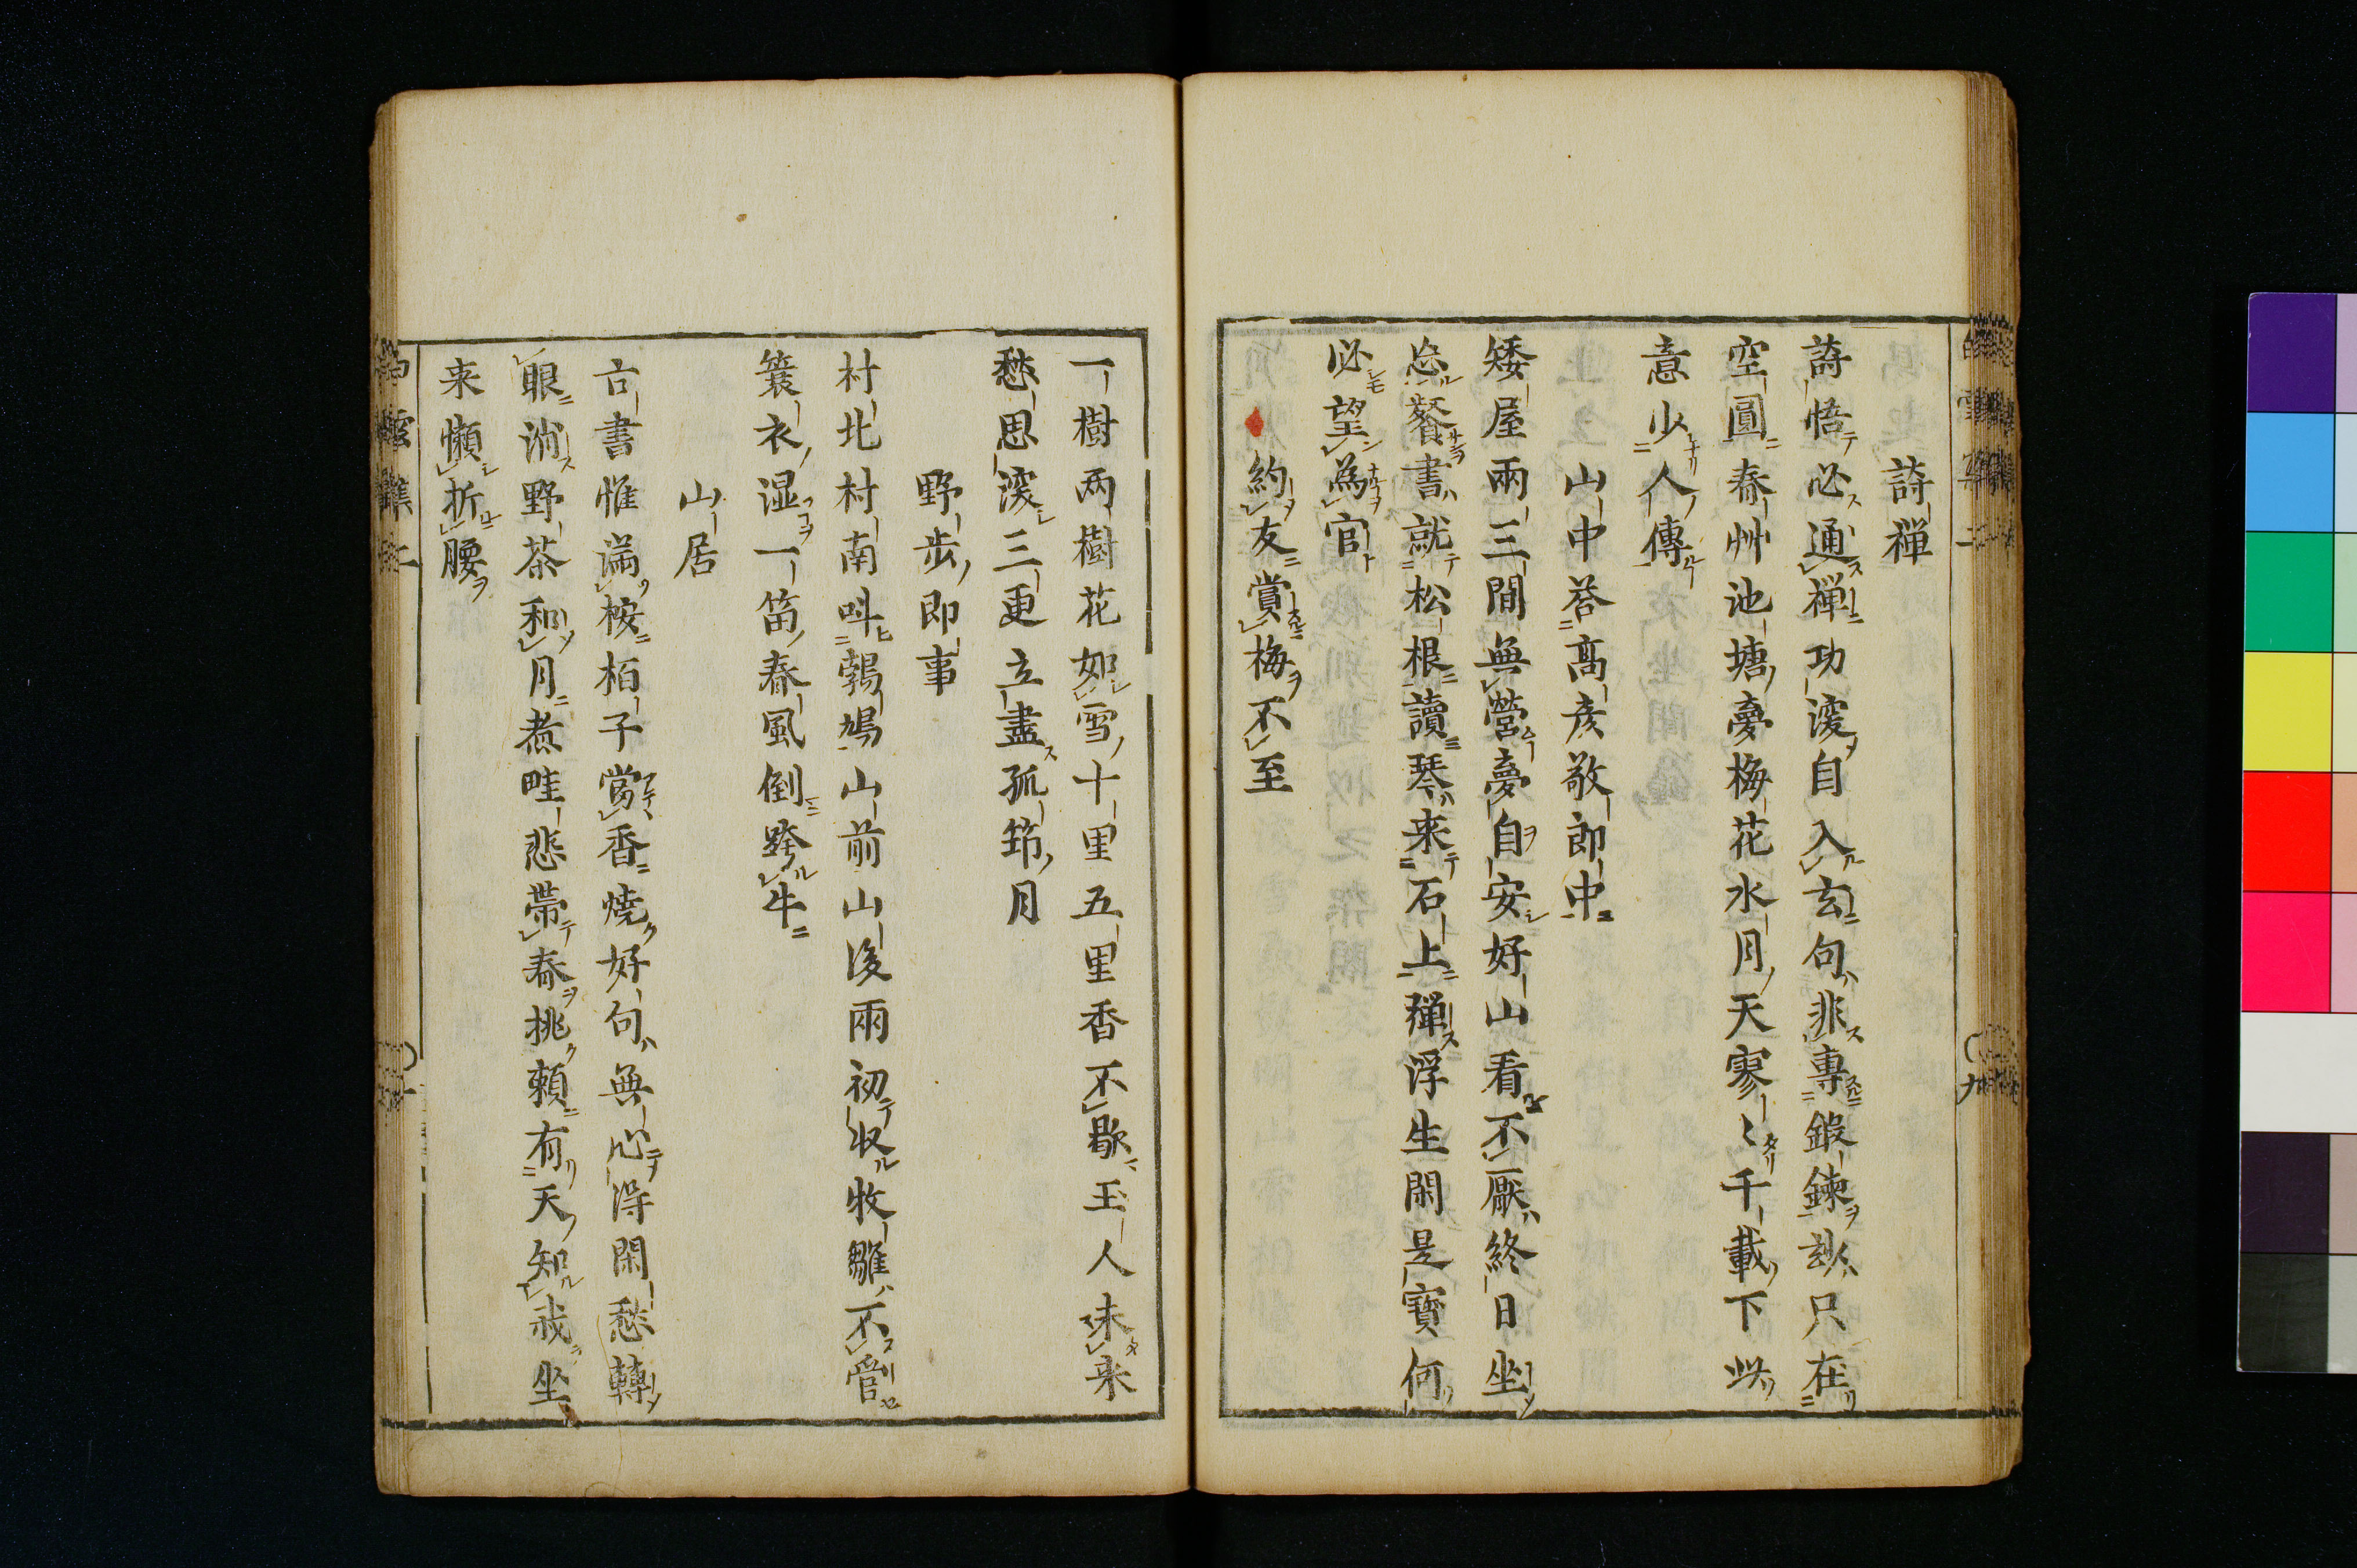 詩禅
詩悟必通禅功深自入玄句非專鍛錬訣只在
空圓春艸池塘夢梅花水月天寥〻千載下此
意少人傳
山中荅髙彦敬郎中
矮屋兩三間無營夢自安好山看不厭終日坐
忘餐書就松根讀琴来石上弾浮生閑是寳何
必望為官
約友賞梅不至
一樹两樹花如雪十里五里香不歇玉人未来
愁思深三更立盡孤筇月
野歩即事
村北村南呌鵓鳩山前山後雨初収牧雛不管
簑衣湿一笛春風倒跨牛
山居
古書惟満桉栢子當香燒好句無心淂閑愁轉
眼消野茶和月煮畦悲帯春挑頼有天知我坐
来懶折腰